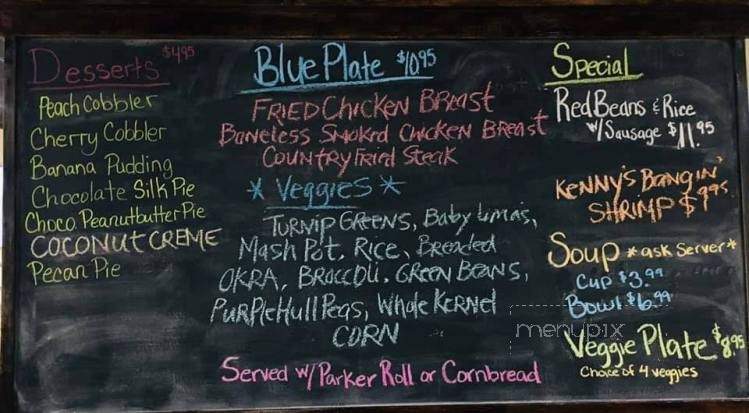 Desserts $4.95
Peach Cobbler
Cherry Cobbler
Banana Pudding
Chocolate Silk Pie
Choco Peanutbutter Pie
COCONUT CREME
Pecan Pie
Blue Plate $10.95
FRIED CHICKEN BREAST
Boneless Smoked Chicken Breast
Country Fried Steak
* Veggies *
Turnip Greens, Baby Limas,
Mash Pot., Rice, Breaded
OKRA, BROCCOLI, GREEN BEANS,
PURPLE Hull Peas, Whole KERNEL
CORN
Served w/ Parker Roll or Cornbread
Special
Red Beans & Rice
w/ Sausage $11.95
KENNY'S BANGIN'
SHRIMP $7.95
Soup *ask Server*
Cup $3.99
Bowl $6.99
menupix
Veggie Plate $8.95
Choice of 4 veggies